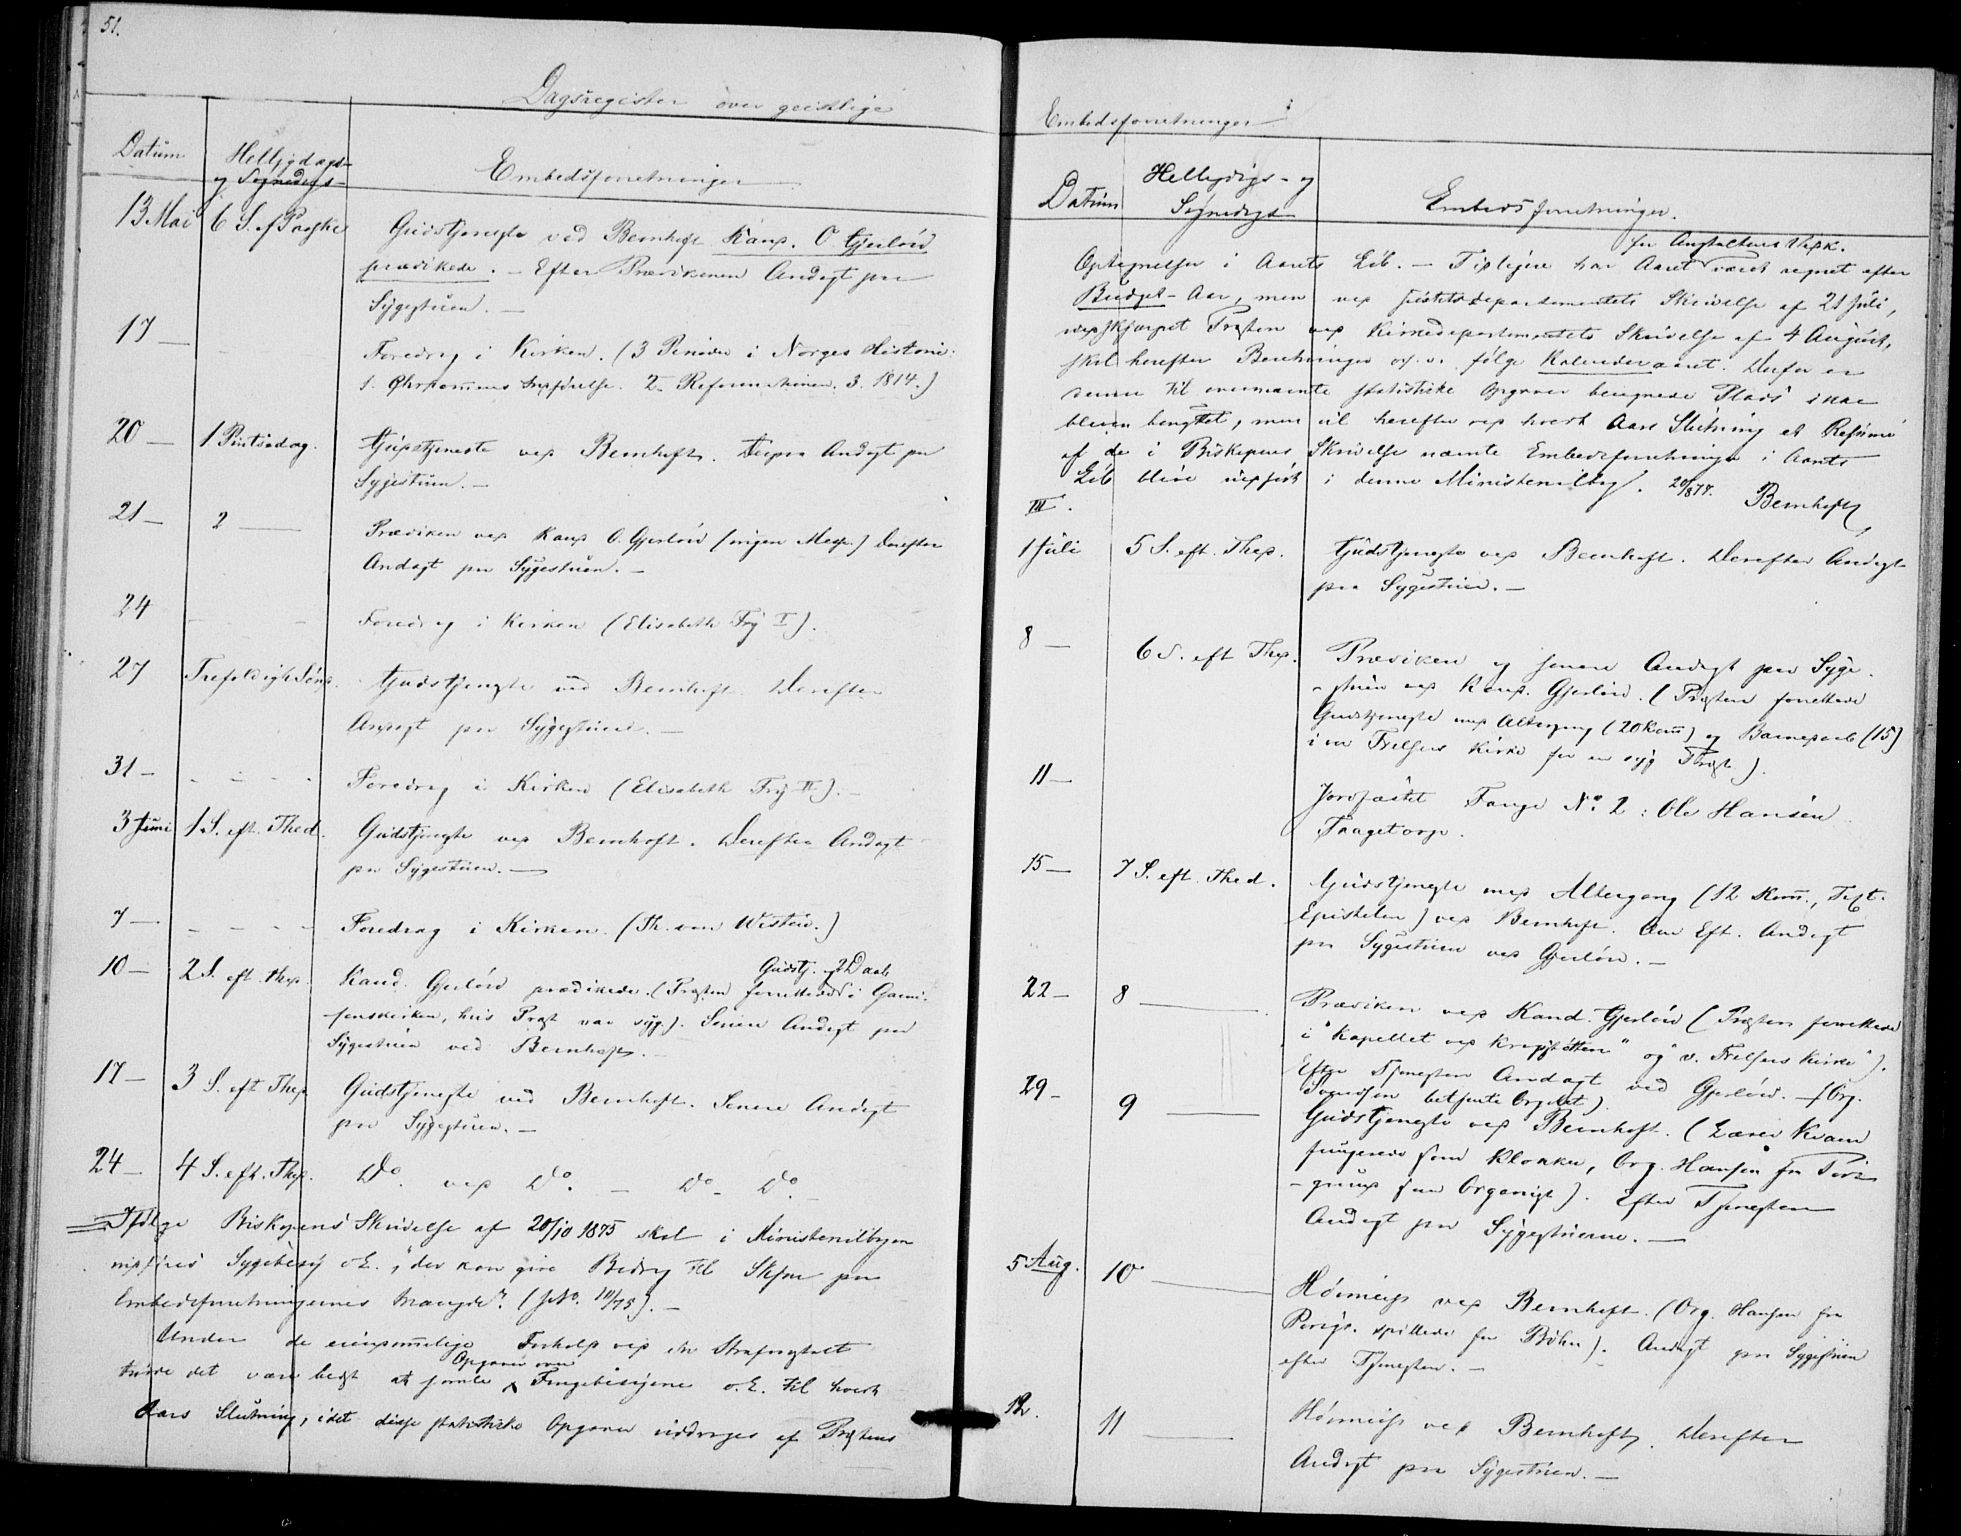 51.
Dagsregister over geistlige
Datum
Helligdags-
og Søgnedags-
Embedsforretninger
13 Mai 6 S. ef Paaske Gudstjeneste ved Bernhoft. Kand. O. Gjerløw
prædikede. – Efter Prædikenen Andagt paa
Sygestuen. –
17 – Foredrag i Kirken. (3 Perioder i Norges Historie:
1. Christendommens Indførelse. 2. Reformationen. 3. 1814.)
20 – 1 Pintsedag. Gudstjeneste ved Bernhoft. Derpaa Andagt paa
Sygestuen. –
21 – 2 – Prædiken ved Kand O. Gjerløw (ingen Messe.) Derefter
Andagt paa Sygestuen. –
24 Foredrag i Kirken (Elisabeth Fry I).
27 Trefoldigh. Sønd. Gudstjeneste ved Bernhoft. Derefter
Andagt paa Sygestuen. –
31 – Foredrag i Kirken (Elisabeth Fry II). –
3 Juni 1 S. eft. Tred. Gudstjeneste ved Bernhoft. Derefter Andagt
paa Sygestuen. –
7 – Foredrag i Kirken. (Th. von Westen.)
10 – 2 S. eft. Tred. Kand. Gjerløw prædikede. (Præsten forrettede Gudstj. og 2 Daab i Garni-
sonskirken, hvis Præst var syg.). Senere Andagt paa
Sygestuen ved Bernhoft. –
17 – 3 S. eft Tred. Gudstjeneste ved Bernhoft. Senere Andagt
paa Sygestuen. –
24 – 4 S. eft. Tred. Do. ved Do. – Do – Do. –
Ifølge Biskopens Skrivelse af 20/10 1875 skal i Ministerialbogen
indføres Sygebesøg o.L., "der kan give Bidrag til Skjøn paa
Embedsforretningernes Mængde". (JNo. 111/75). –
Under de eiendommelige Forhold ved en Strafanstalt
turde det være bedst at samle Opgaver over Fangebesøgene o.L. til hvert
Aars Slutning, idet disse statistiske Opgaver uddrages af Præstens
Embedsforretninger
Datum
Helligdags- og
Søgnedags
Embedsforretninger.
Optegnelser i Aarets Løb. – Tidligere har Aaret for Anstaltens Vedk. været regnet efter
Budget-Aar, men ved Justitsdepartementets Skrivelse af 21 Juli,
tilskjønt Præsten ved Kirkedepartementets Skrivelse af 4 August,
skal herefter Beretninger o.s.v. følge Kalenderaaret. Derfor er
denne til ovennævnte statistiske Opgaver beregnede Plads ikke
bleven benyttet, men vil herefter ved hvert Aars Slutning et Resumé
af de i Biskopens Skrivelse nævnte Embedsforretninger i Aarets
Løb blive indført i denne Ministerialbog. Bernhoft
III.
1 Juli 5 S. eft. Tred. Gudstjeneste ved Bernhoft. Derefter Andagt
paa Sygestuen. –
8 – 6 S. eft Tred. Prædiken og senere Andagt paa Syge-
-stuen ved Kand. Gjerløw. (Præsten forrettede
Gudstjeneste med Altergang (20 Kom) og Barnedaab (15)
i vor Frelsers Kirke for en syg Præst.).
11 – Jordfæstet Fange No. 2: Ole Hansen
Fragetorp.
15 – 7 S. eft. Tred. Gudstjeneste med Altergang (12 Kom., Text.
Epistelen) ved Bernhoft. Om Eft. Andagt
paa Sygestuen ved Gjerløw. –
22 – 8 – Prædiken ved Kand. Gjerløw (Præsten forrettede
i "Kapellet ved Krudttaarnet" og "v. Frelsers Kirke").
Efter Tjenesten Andagt ved Gjerløw. – (Org.
Svendsen betjente Orgelet).
29 – 9 – Gudstjeneste ved Bernhoft. (Lærer Kvam
fungerede som Klokker, Org. Hansen fra Pors-
-grund som Organist). Efter Tjenesten
Andagt paa Sygestuerne. –
5 Aug. 10 – Høimesse ved Bernhoft. (Org. Hansen fra
Porsgr. spillede for Bøhn). Andagt paa Sygestuen
efter Tjenesten. –
12. 11 – Høimesse ved Bernhoft. Derefter
Andagt paa Sygestuen. –